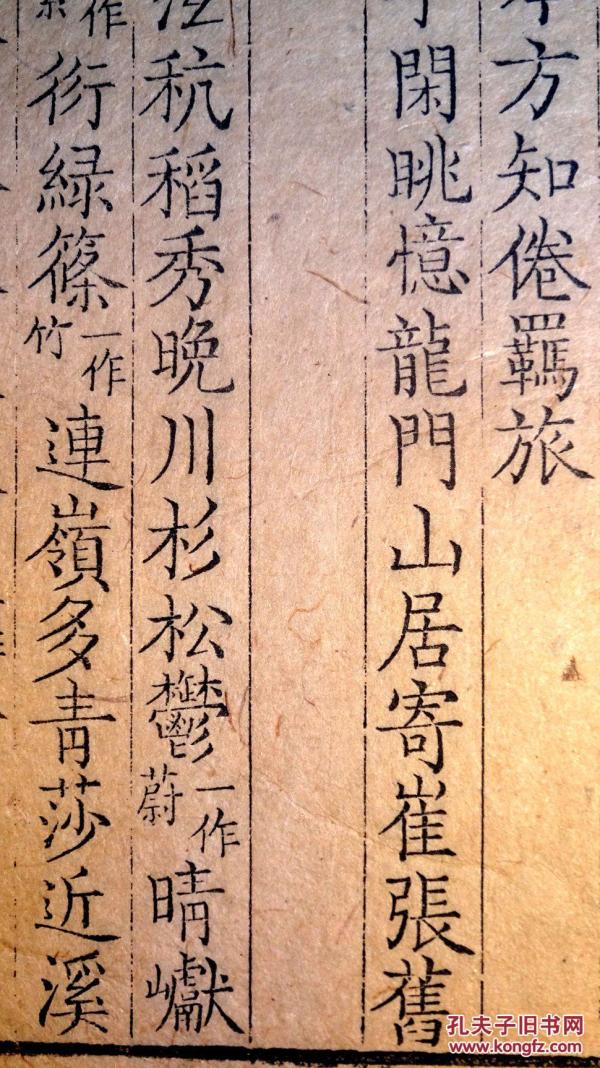 方知倦羈旅
閑眺憶龍門山居寄崔張舊
秔稻秀晚川杉松鬱一作蔚晴巘
作衍緑篠一作竹連嶺多青莎近溪
孔夫子旧书网
www.kongfz.com